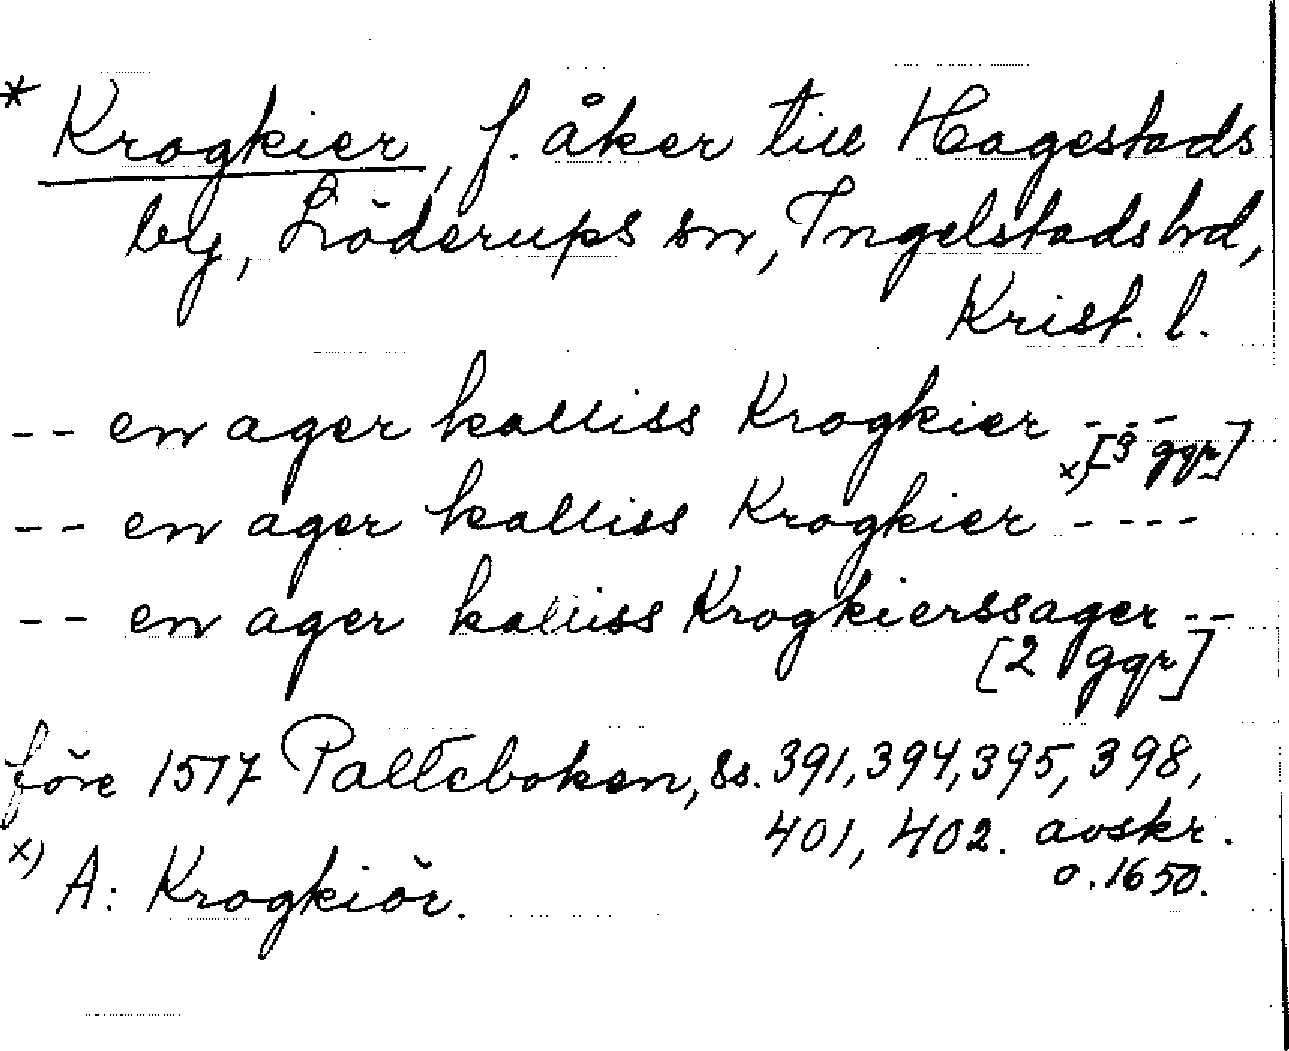 * Krogkier, f. åker till Hagestads
by, Löderups sn, Ingelstads hd,
Krist. l.
-- en ager kalliss Krogkier - - - -
x) [3 ggr]
-- en ager kalliss Krogkier - - - -
-- en ager kalliss Krogkierssager --
[2 ggr]
före 1517 Palteboken, ss. 391, 394, 395, 398,
401, 402. avskr.
o. 1650.
x) A: Krogkiör.